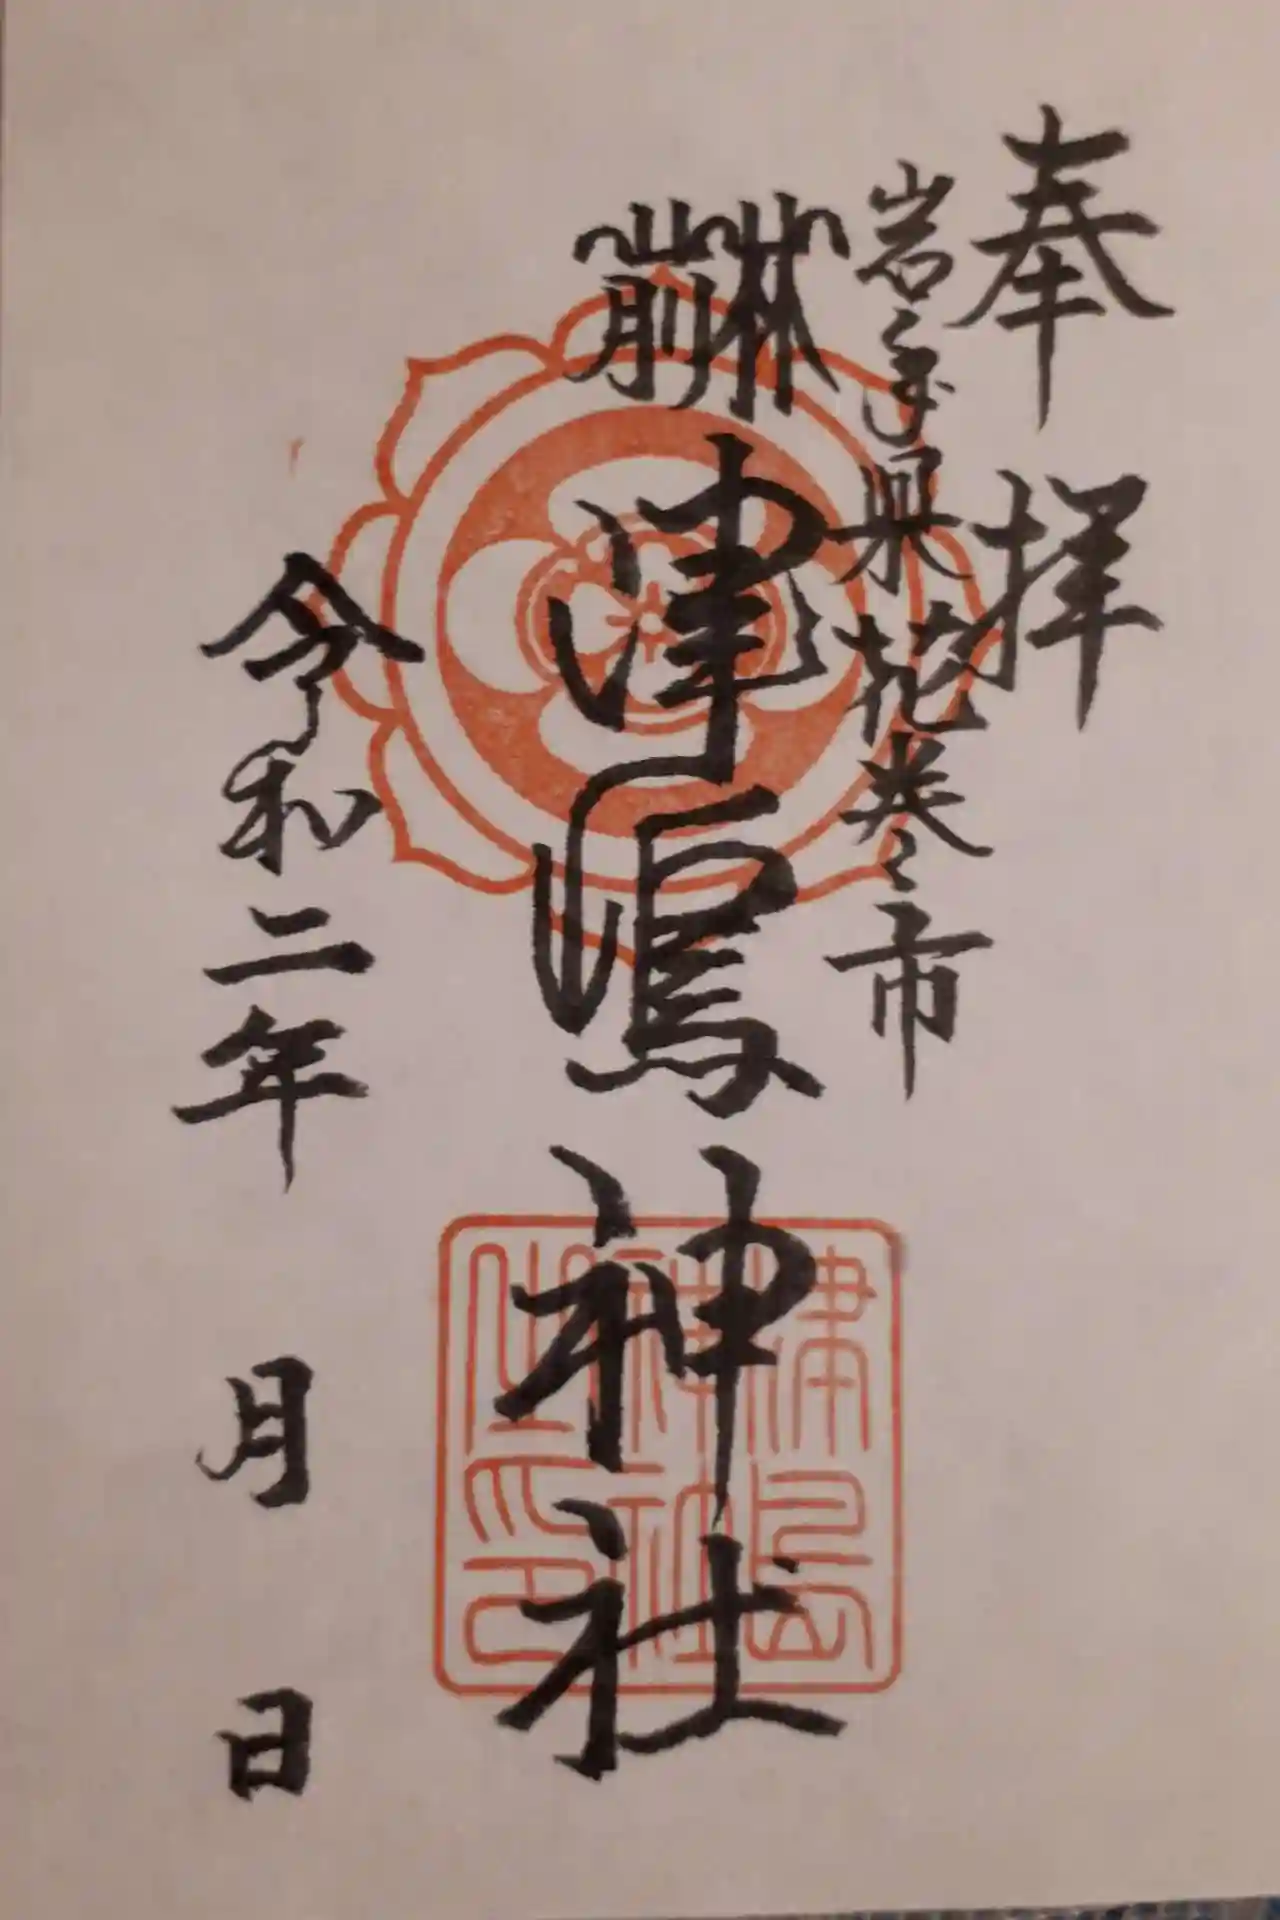 奉拝
岩手県花巻市
津嶋神社
令和二年 月 日
津嶋
神社
之印